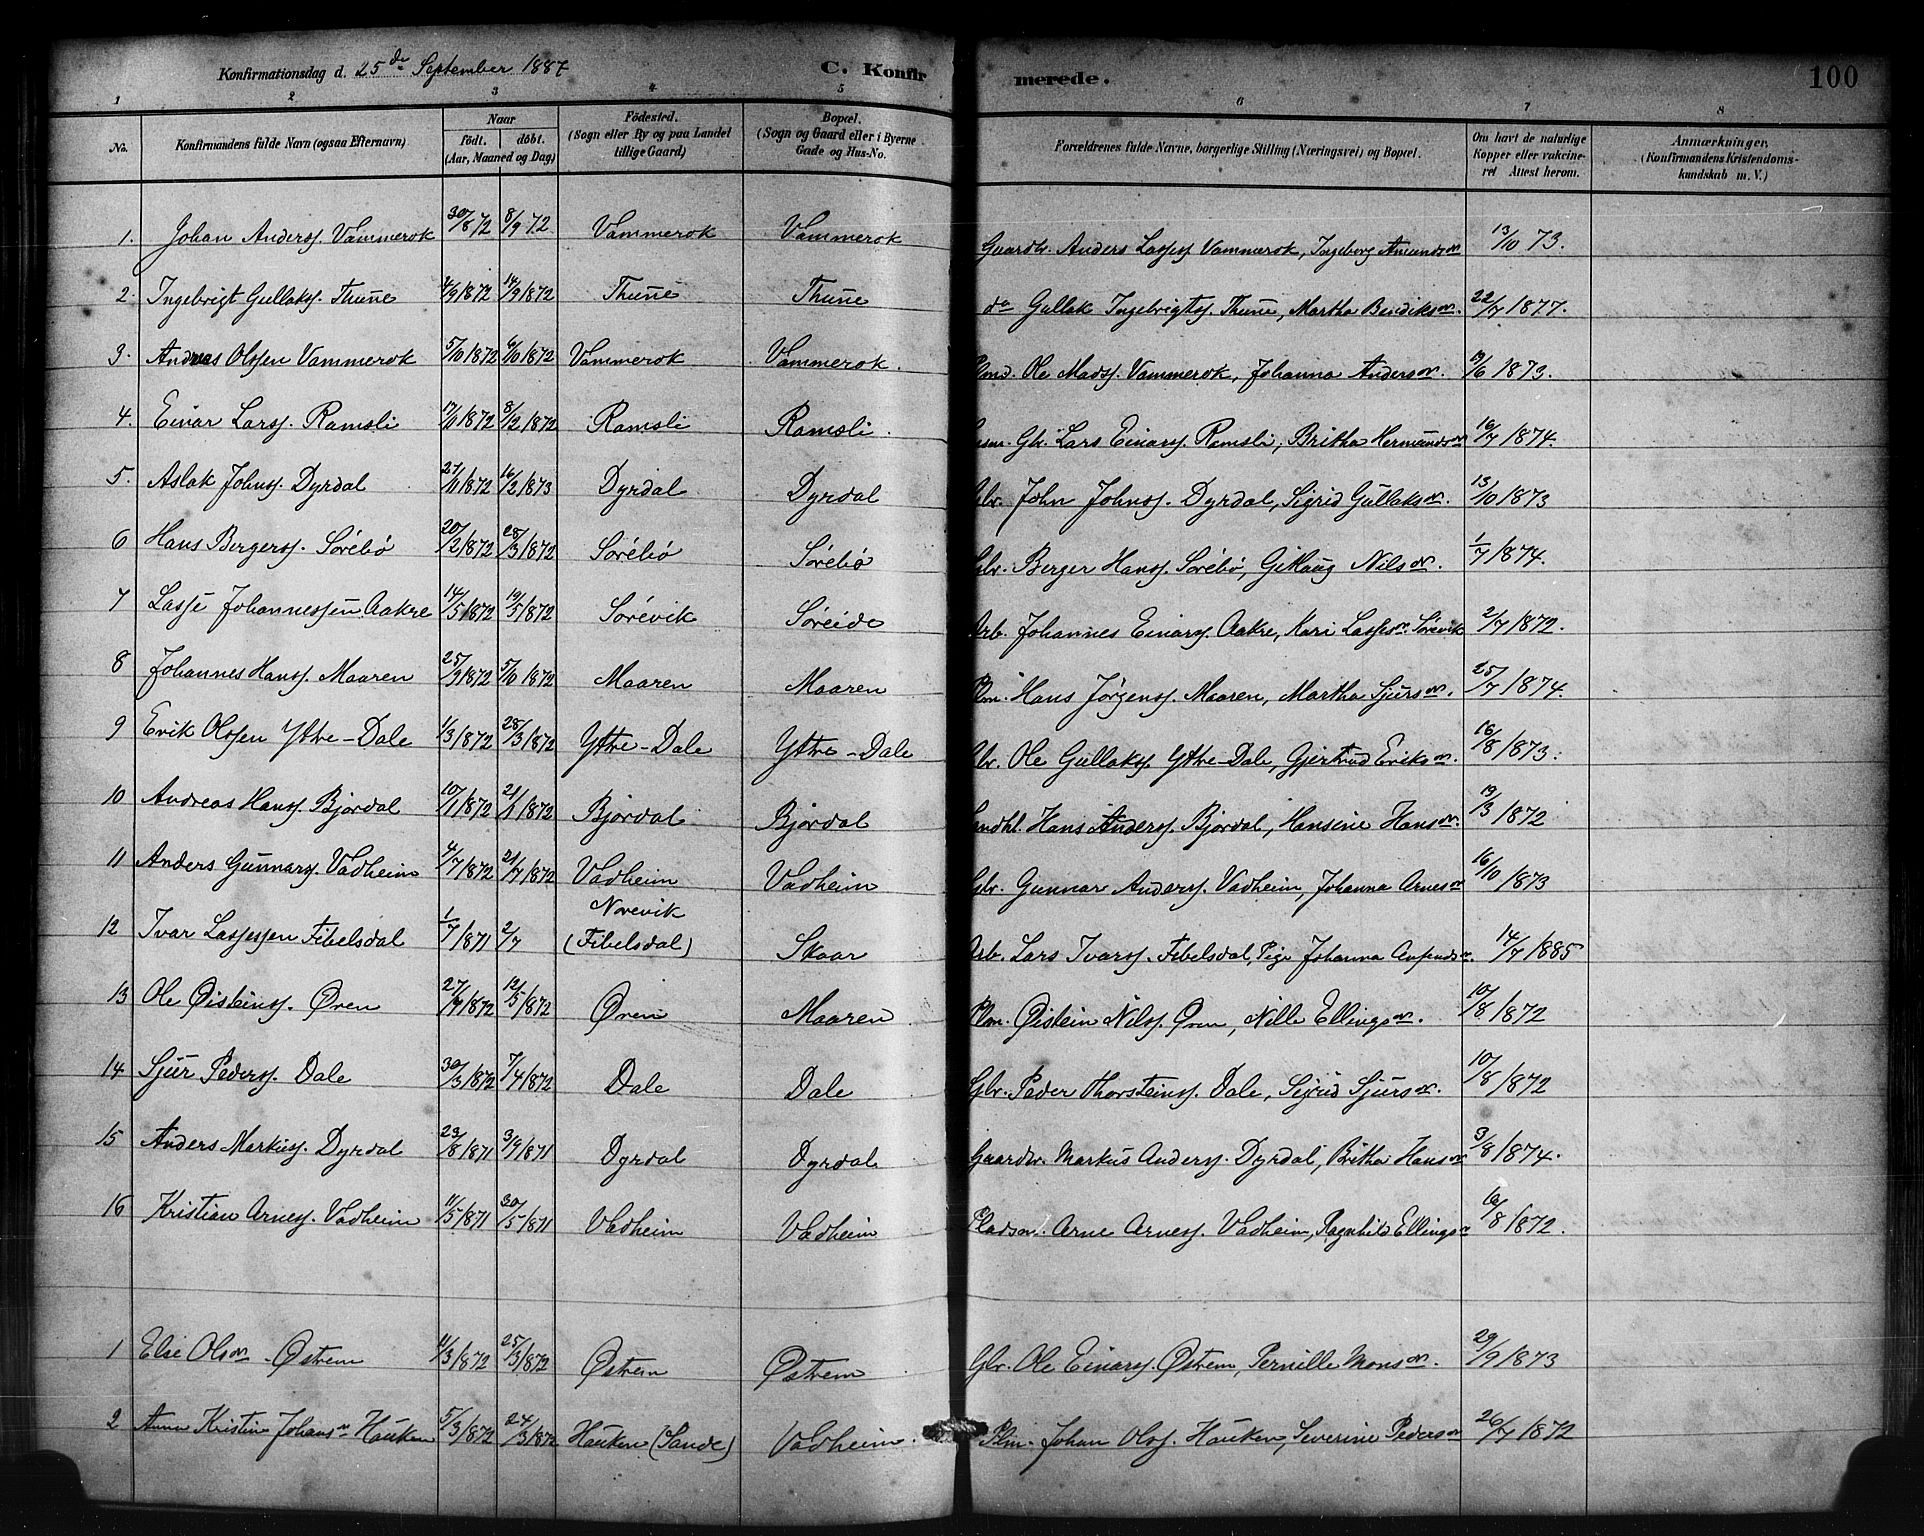 Konfirmationsdag d. 25de September 1887 C. Konfirmerede. 100
1 2 3 4 5 6 7 8
No. Konfirmandens fulde Navn (ogsaa Efternavn) Naar födt. döbt. (Aar, Maaned og Dag) Födested. (Sogn eller By og paa Landet tillige Gaard) Bopæl. (Sogn og Gaard eller i Byerne Gade og Hus-No. Forældrenes fulde Navne, borgerlige Stilling (Næringsvei) og Bopæl. Om havt de naturlige Kopper eller vakcineret Attest herom. Anmærkninger. (Konfirmandens Kristendomskundskab m. V.)
1. Johan Anderss. Vammerok 30/8 72 8/9 72 Vammerok Vammerok Gaardbr. Anders Lasses. Vammerok, Ingeborg Amundsdr 13/10 73.
2. Ingebrigt Gullakss. Thune 4/9 1872 14/9 1872 Thune Thune do Gullak Ingebrigtss. Thune, Martha Bendiksdr. 22/7 1877.
3. Andreas Olssen Vammerok 5/10 1872 6/10 1872 Vammerok Vammerok. Plmd. Ole Madss. Vammerok, Johanna Andersdr. 19/6 1873.
4. Einar Larss. Ramsli 17/11 1872 8/12 1872 Ramsli Ramsli. Gbr. Lars Einarss. Ramsli, Britha Hermundsdr 16/7 1874.
5. Aslak Johnss. Dyrdal 27/11 1872 16/2 1873 Dyrdal Dyrdal Gbr. John Johnss. Dyrdal, Sigrid Gullaksdr. 13/10 1873
6 Hans Bergerss. Sørebø 20/2 1872 28/3 1872 Sørebø Sørebø Gbr. Berger Hanss. Sørebø, Gitlaug Nilsdr. 1/7 1874.
7 Lasse Johannessen Aakre 14/5 1872 19/5 1872 Sørevik Søreide Arb. Johannes Einarss. Aakre, Kari Lassesdr. Sørevik 2/7 1872.
8 Johannes Hanss. Maaren 25/9 1872 5/10 1872 Maaren Maaren Plm. Hans Jørgenss. Maaren, Martha Sjursdr. 25/7 1874.
9 Erik Olssen Ytre-Dale 1/3 1872 28/3 1872 Ytre-Dale Ytre-Dale Gbr. Ole Gullakss. Ytre-Dale, Gjertrud Eriksdr. 16/8 1873.
10 Andreas Hanss. Bjordal 10/1 1872 21/1 1872 Bjordal Bjordal Landhl. Hans Anderss. Bjordal, Hansine Hansdr. 19/3 1872
11 Anders Gunnarss. Vadheim 4/7 1872 21/7 1872 Vadheim Vadheim Gbr. Gunnar Anderss. Vadheim, Johanna Arnesdr 16/10 1873
12 Ivar Lassessen Fibelsdal 1/7 1871 2/7 Norevik (Fibelsdal) Skaar Arb. Lars Ivarss. Fibelsdal, Pige Johanna 14/7 1885
13 Ole Øisteinss. Øren 27/9 1872 12/5 1872 Øren Maaren Plm. Øistein Nilss. Øren, Nille Ellingsdr. 10/8 1872
14 Sjur Pederss. Dale 30/3 1872 7/4 1872 Dale Dale Gbr. Peder Thorsteinss. Dale, Sigrid Sjursdr. 10/8 1872
15 Anders Markuss. Dyrdal 23/8 1871 3/9 1871 Dyrdal Dyrdal Gaardbr. Markus Anderss. Dyrdal, Britha Hansdr 3/8 1874.
16 Kristian Arness. Vadheim 11/5 1871 30/5 1871 Vadheim Vadheim Pladsm. Arne Arness. Vadheim, Ragnhild Ellingsdr 19/8 1872.
1 Else Olsdr Østrem 11/3 1872 25/3 1872 Østrem Østrem Gbr. Ole Einarss. Østrem, Pernille Monsdr. 29/9 1873
2 Anna Kristine Johansdr Hauken 5/3 1872 24/3 1872 Hauken (Sande) Vadheim. Plm. Johan Olss. Hauken, Severine Pedersdr 26/7 1872